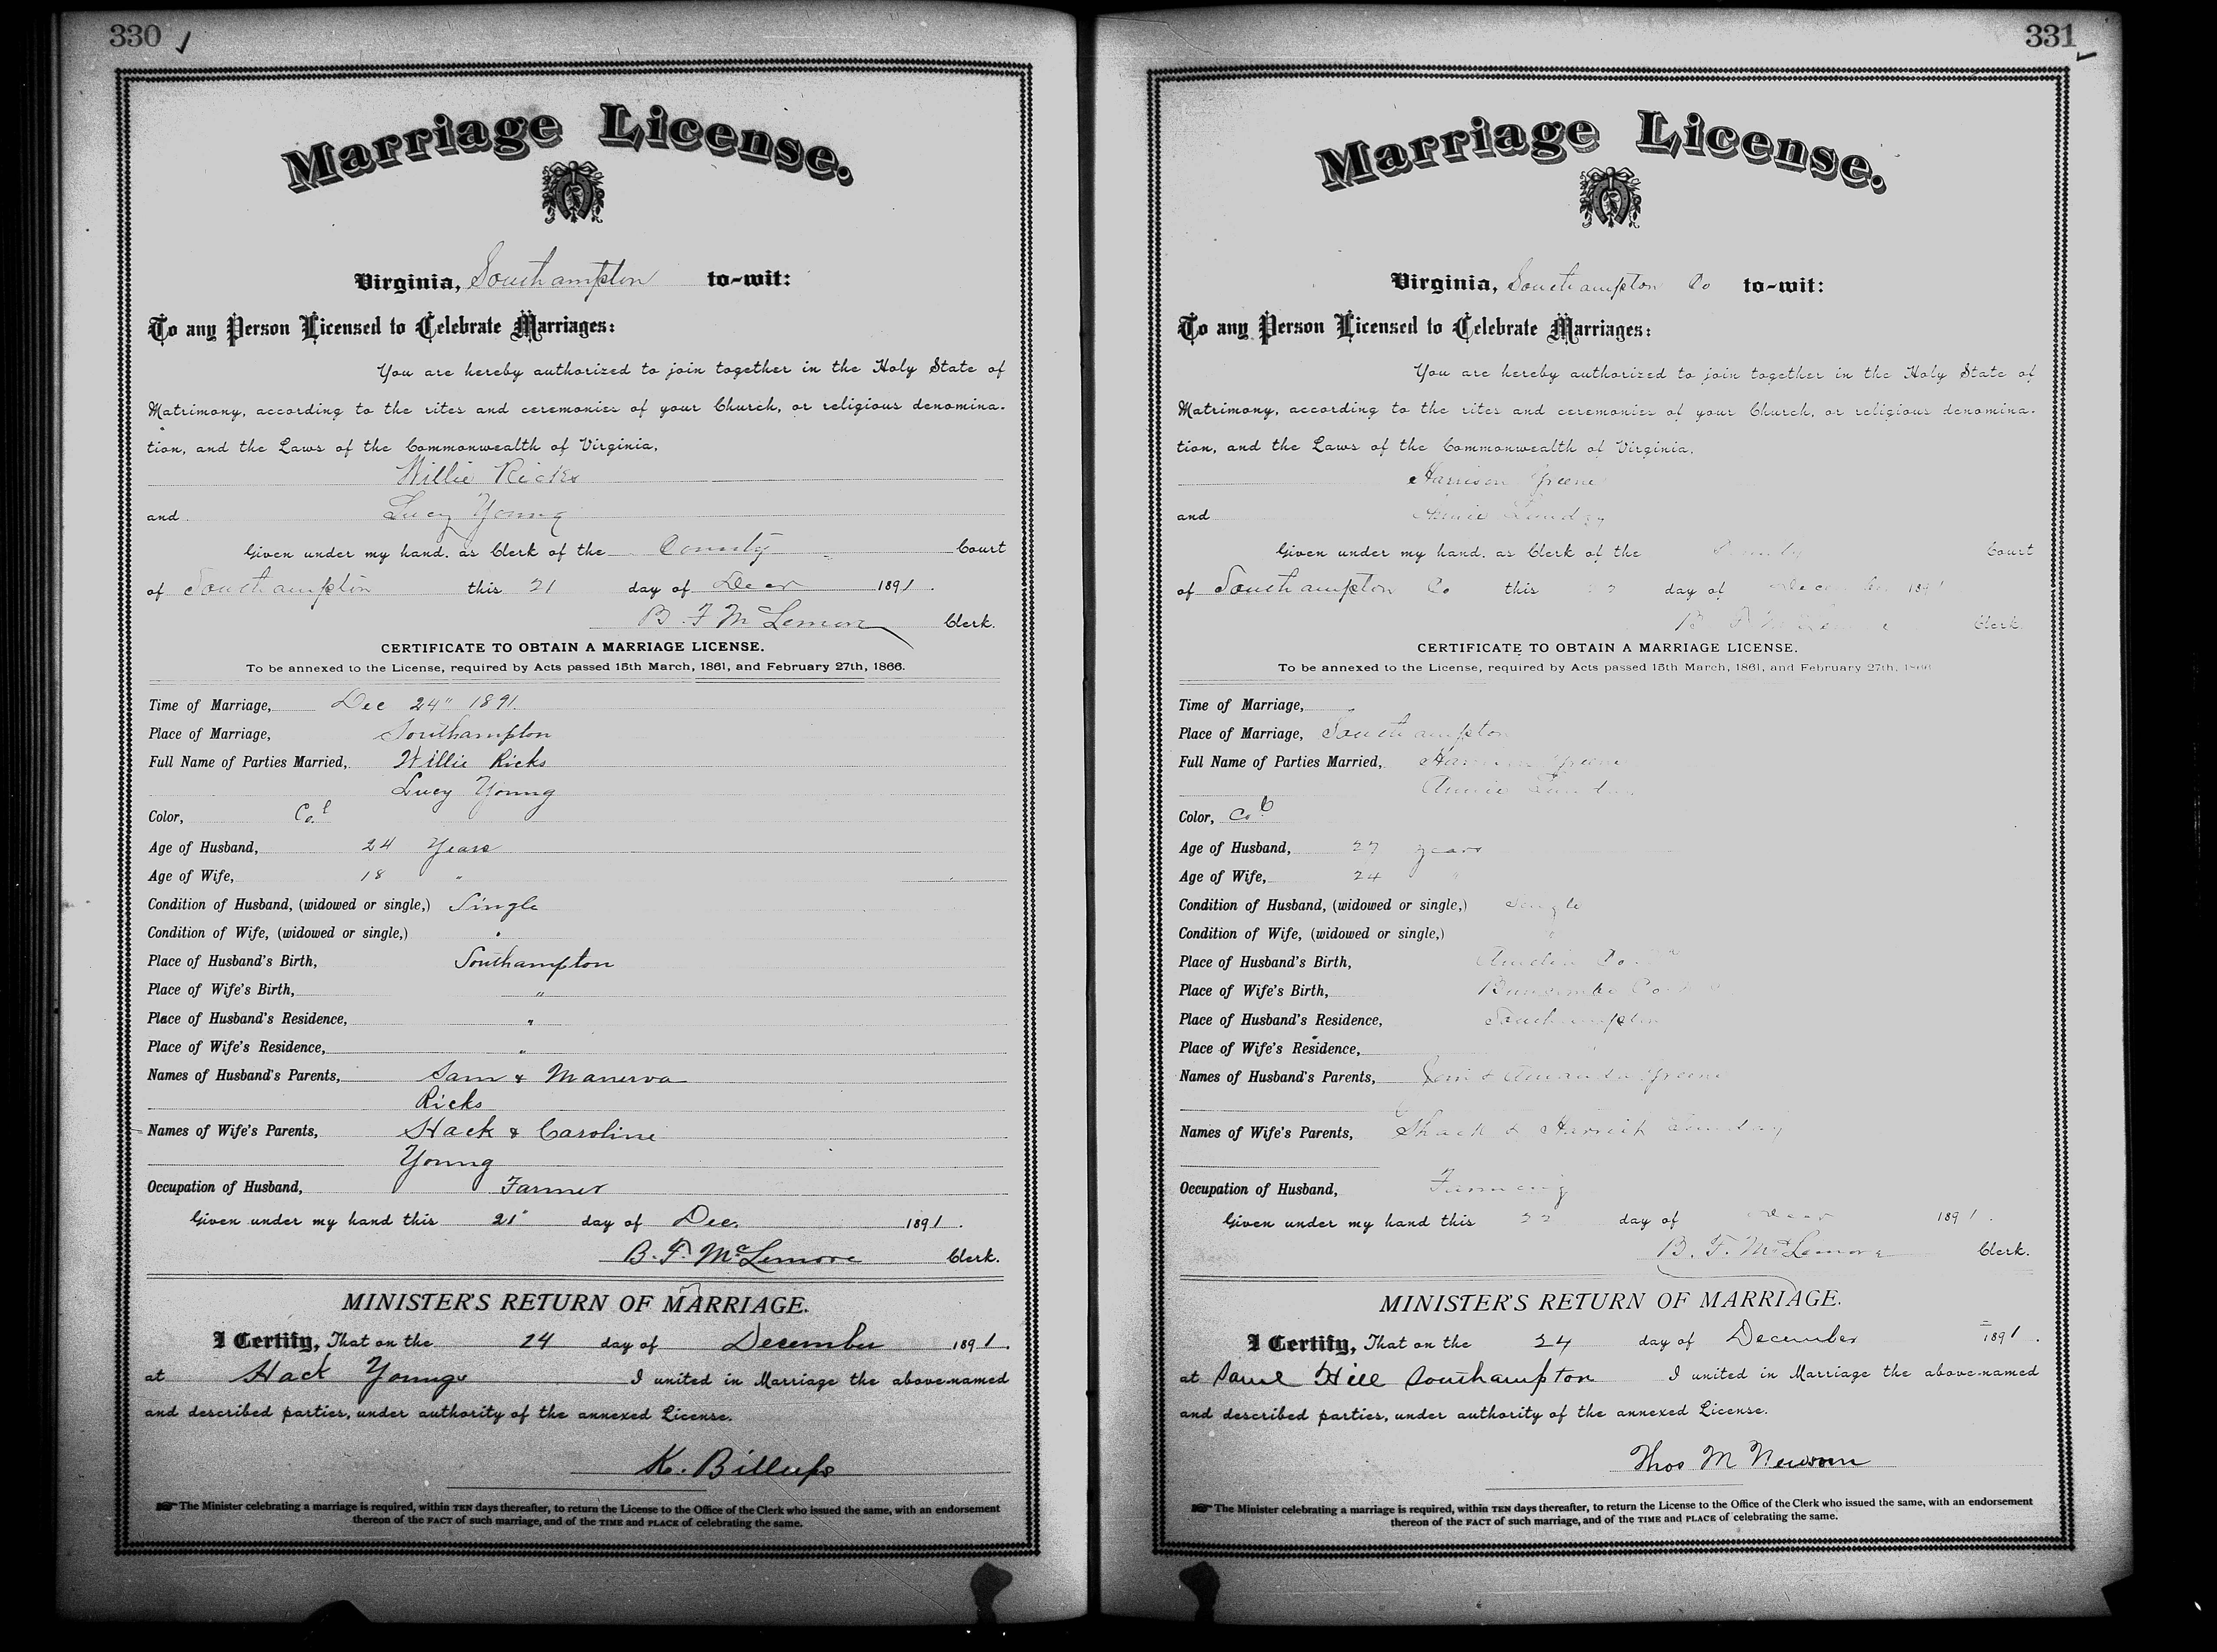 330
Marriage License.
Virginia, Southampton to-wit:
To any Person Licensed to Celebrate Marriages:
You are hereby authorized to join together in the Holy State of
Matrimony, according to the rites and ceremonies of your Church, or religious denomina-
tion, and the Laws of the Commonwealth of Virginia,
Willie Ricks
and Lucy Young
Given under my hand, as Clerk of the County Court
of Southampton this 21 day of Decr 1891.
B. F. McLemore Clerk.
CERTIFICATE TO OBTAIN A MARRIAGE LICENSE.
To be annexed to the License, required by Acts passed 15th March, 1861, and February 27th, 1866.
Time of Marriage, Dec 24" 1891
Place of Marriage, Southampton
Full Name of Parties Married, Willie Ricks
Lucy Young
Color, Col
Age of Husband, 24 Years
Age of Wife, 18 "
Condition of Husband, (widowed or single,) Single
Condition of Wife, (widowed or single,) "
Place of Husband's Birth, Southampton
Place of Wife's Birth, "
Place of Husband's Residence, "
Place of Wife's Residence, "
Names of Husband's Parents, Sam & Manerva
Ricks
Names of Wife's Parents, Hack & Caroline
Young
Occupation of Husband, Farmer
Given under my hand this 21" day of Dec. 1891.
B. F. McLemore Clerk.
MINISTER'S RETURN OF MARRIAGE.
I Certify, That on the 24 day of December 1891.
at Hack Youngs I united in Marriage the above-named
and described parties, under authority of the annexed License.
K. Billups
The Minister celebrating a marriage is required, within TEN days thereafter, to return the License to the Office of the Clerk who issued the same, with an endorsement
thereon of the FACT of such marriage, and of the TIME and PLACE of celebrating the same.
331
Marriage License.
Virginia, Southampton Co to-wit:
To any Person Licensed to Celebrate Marriages:
You are hereby authorized to join together in the Holy State of
Matrimony, according to the rites and ceremonies of your Church, or religious denomina-
tion, and the Laws of the Commonwealth of Virginia,
Harrison Greene
and Annie
Given under my hand, as Clerk of the County Court
of Southampton Co this 22 day of December 1891
B. F. McLemore Clerk.
CERTIFICATE TO OBTAIN A MARRIAGE LICENSE.
To be annexed to the License, required by Acts passed 15th March, 1861, and February 27th, 1866.
Time of Marriage,
Place of Marriage, Southampton
Full Name of Parties Married, Harrison Greene
Annie
Color, Col
Age of Husband, 27 years
Age of Wife, 24 "
Condition of Husband, (widowed or single,) Single
Condition of Wife, (widowed or single,)
Place of Husband's Birth, Co
Place of Wife's Birth, Buncombe Co
Place of Husband's Residence, Southampton
Place of Wife's Residence,
Names of Husband's Parents, & Amanda Greene
Names of Wife's Parents, Shack & Harriet
Occupation of Husband, Farming
Given under my hand this 22 day of Decr 1891.
B. F. McLemore Clerk.
MINISTER'S RETURN OF MARRIAGE.
I Certify, That on the 24 day of December 1891.
at Saml Hill Southampton I united in Marriage the above-named
and described parties, under authority of the annexed License.
Thos M Newsom
The Minister celebrating a marriage is required, within TEN days thereafter, to return the License to the Office of the Clerk who issued the same, with an endorsement
thereon of the FACT of such marriage, and of the TIME and PLACE of celebrating the same.